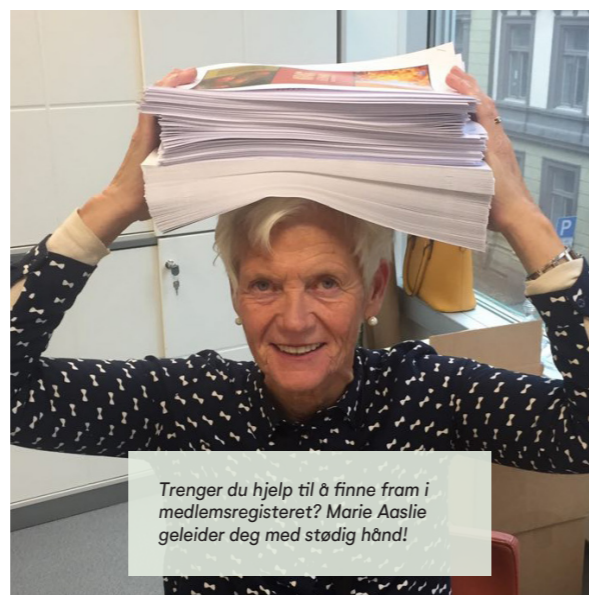 P
Trenger du hjelp til å finne fram i
medlemsregisteret? Marie Aaslie
geleider deg med stødig hånd!